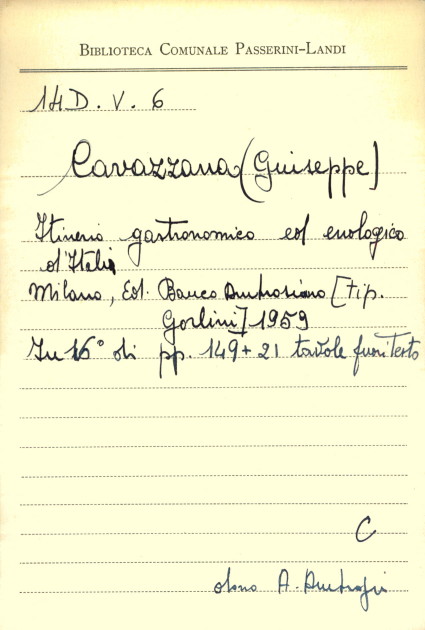 BIBLIOTECA COMUNALE PASSERINI-LANDI
14D. V. 6
Cavazzana (Giuseppe)
Itinerio gastronomico ed enologico
d'Italia
Milano, Ed. Banco Ambrosiano [Tip.
Gorlini] 1959
In 16° di pp. 149 + 21 tavole fuori testo
C
dono A.